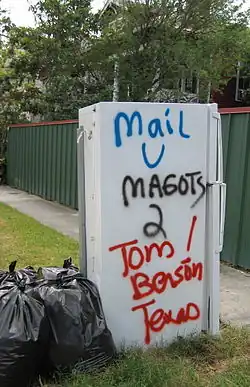 Mail
U
MAGOTS
2
Tom /
Benson
Texas